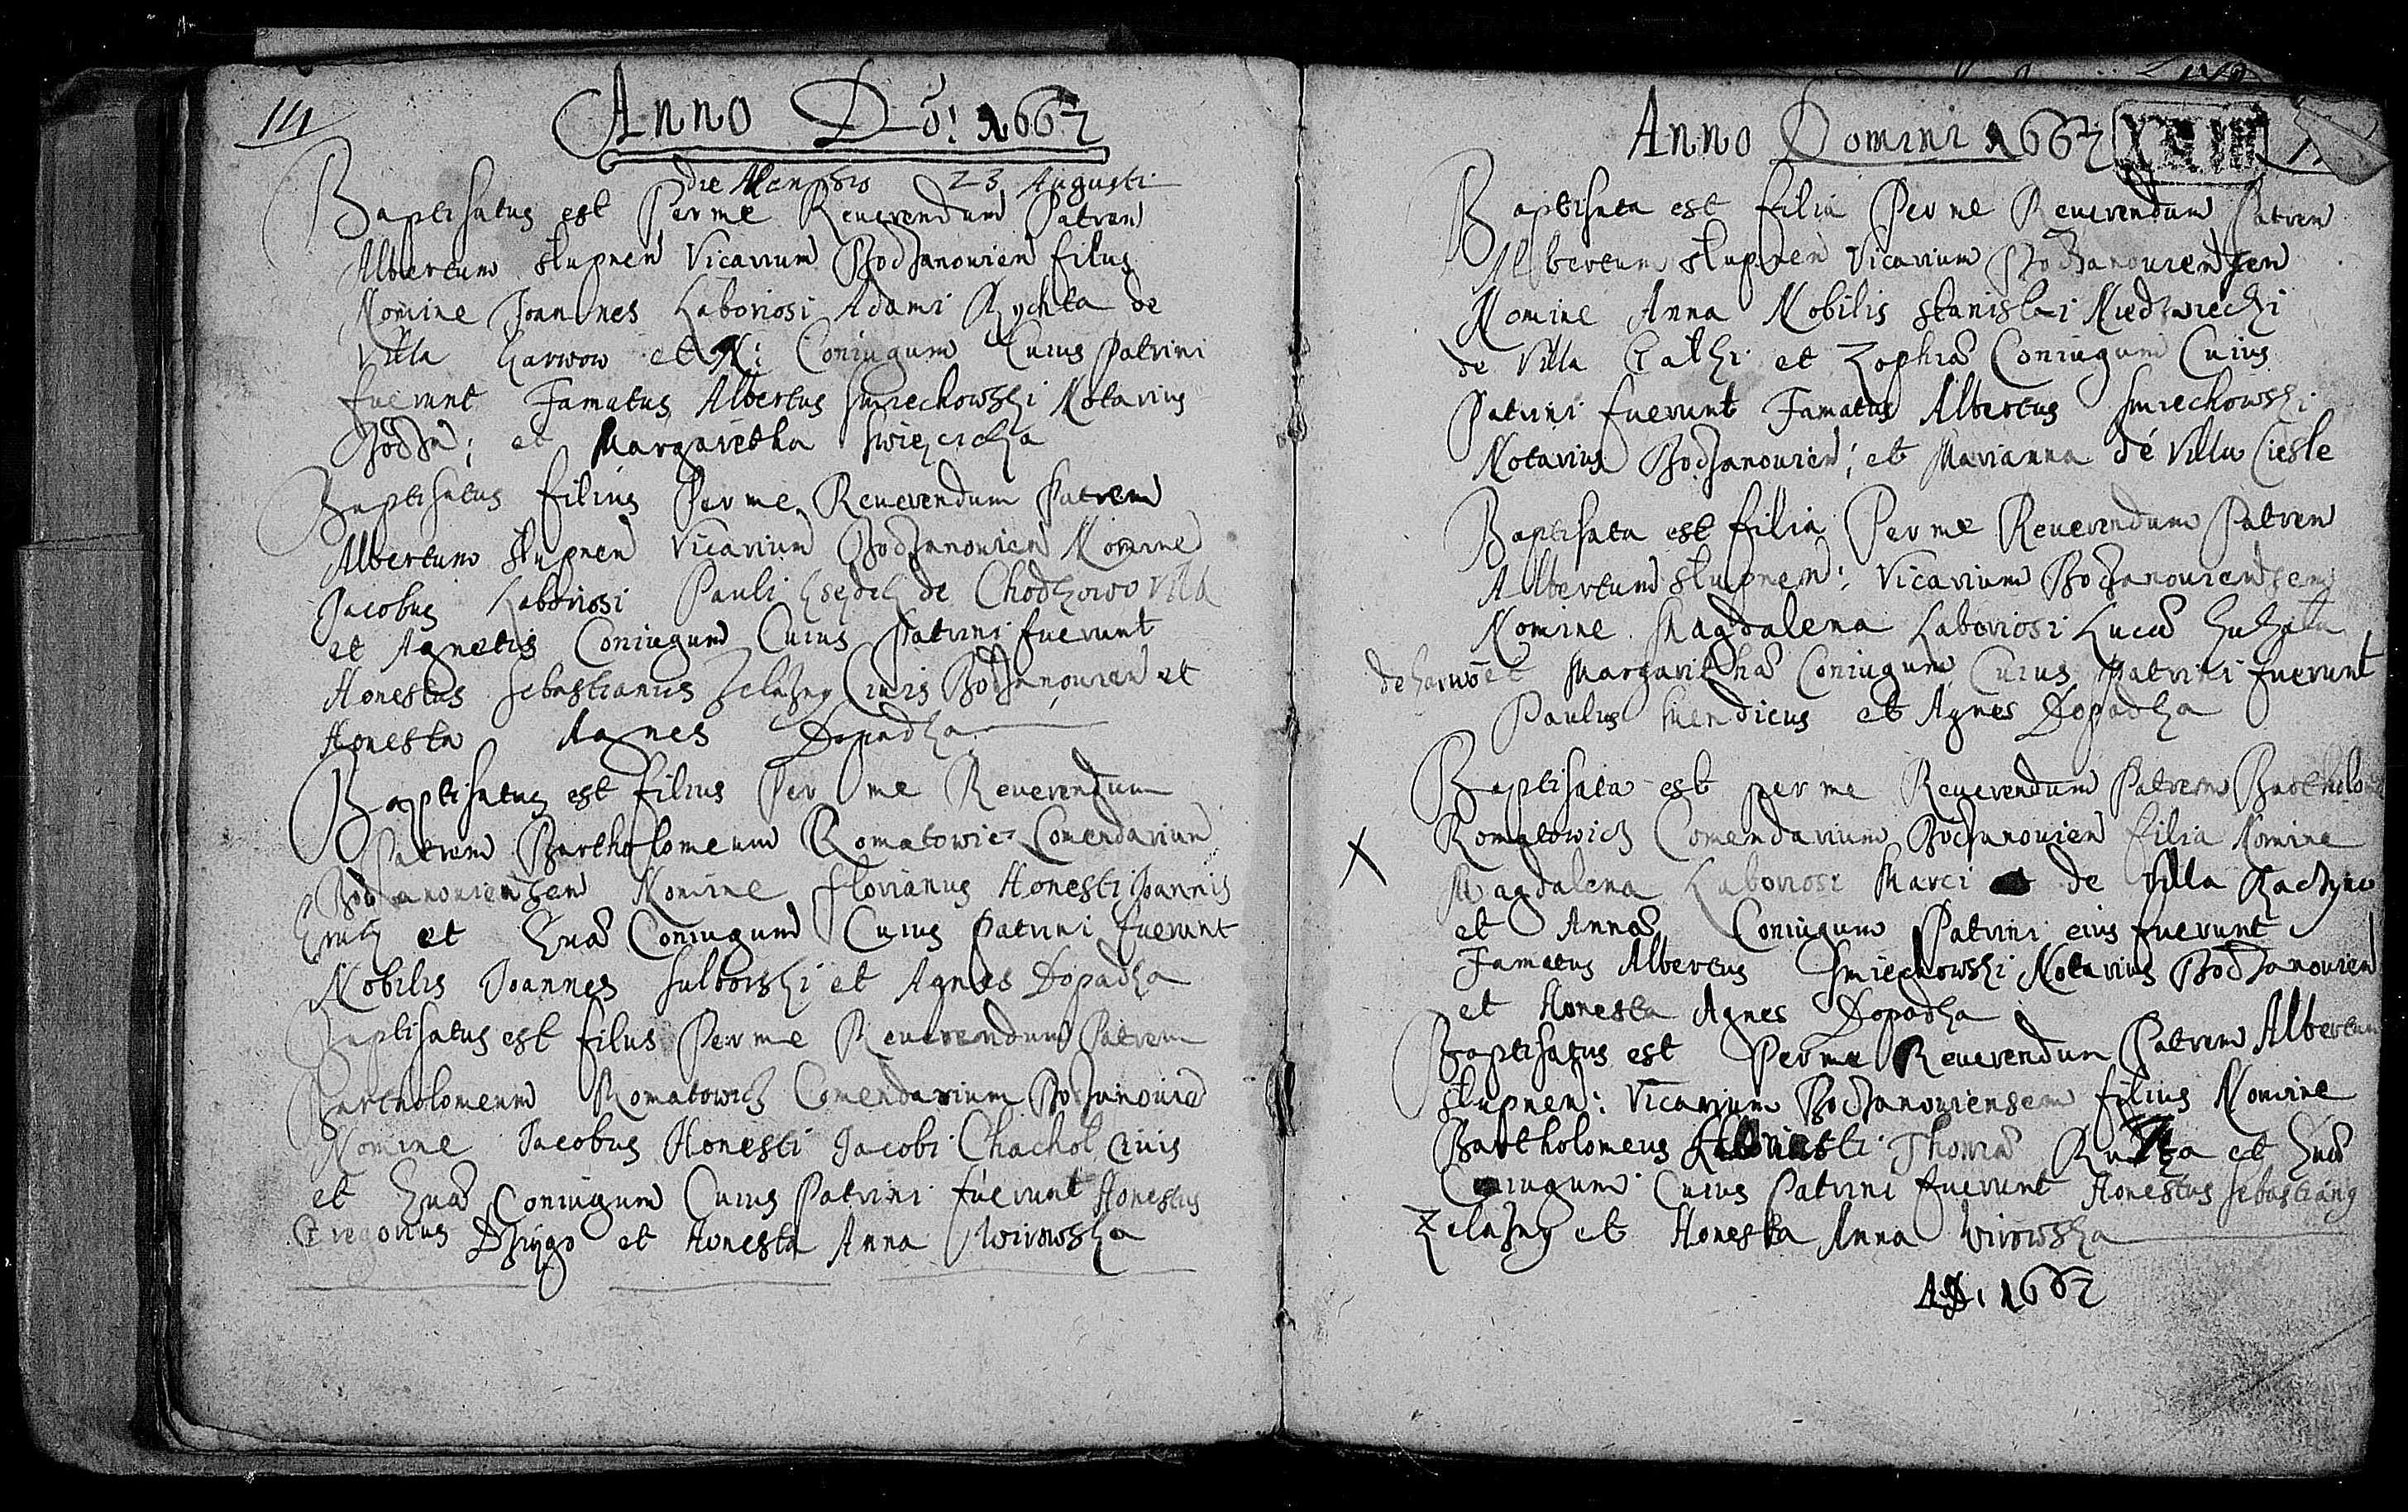 114
Anno Dōi 1662
die Mensis 23 Augusti
Baptisatus est Per me Reuerendum Patrem
Albertum Slupnen Vicarium Bodzanouien filius
Nomine Joannes Laboriosi Adami Rychta de
Villa Garwow et N: Coniugum Cuius Patrini
fuerunt Famatus Albertus Smiechowski Notarius
Bodzn; et Margaretha
Baptisatus filius Per me Reuerendum Patrem
Albertum Slupnen Vicarium Bodzanouien Nomine
Jacobus Laboriosi Pauli de Chodkowo Villa
et Agnetis Coniugum Cuius Patrini fuerunt
Honestus Sebastianus Zelazny Ciuis Bodzanouien et
Honesta Agnes Dopadka
Baptisatus est filius Per me Reuerendum
Patrem Bartholomeum Romatowicz Comendarium
Bodzanouiensem Nomine Florianus Honesti Joannis
et Euæ Coniugum Cuius Patrini fuerunt
Nobilis Joannes Sulborski et Agnes Dopadka
Baptisatus est filus Per me Reuerendum Patrem
Bartholomeum Romatowicz Comendarium Bodzanouien
Nomine Jacobus Honesti Jacobi Chachol Ciuis
et Euæ Coniugum Cuius Patrini fuerunt Honestus
Gregorius et Honesta Anna Wirowska
Anno Domini 1662
Baptisata est filia Per me Reuerendum Patrem
Albertum Slupnen Vicarium Bodzanouiensem
Nomine Anna Nobilis Stanislai Niedzwiecki
de Villa et Zophiæ Coniugum Cuius
Patrini fuerunt Famatus Albertus Smiechowski
Notarius Bodzanouien; et Marianna de Villa Ciesle
Baptisata est filia Per me Reuerendum Patrem
Albertum Slupnen: Vicarium Bodzanouiensem
Nomine Magdalena Laboriosi Lucæ
de Garwo et Margarithæ Coniugum Cuius Patrini fuerunt
Paulus Mendicus et Agnes Dopadka
Baptisata est per me Reuerendum Patrem Bartholome
X Romatowicz Comendarium Bodzanouien filia Nomine
Magdalena Laboriosi Marci de Villa
et Annæ Coniugum Patrini eius fuerunt
Famatus Albertus Smiechowski Notarius Bodzanouien
et Honesta Agnes Dopadka
Baptisatus est Per me Reuerendum Patrem Albertum
Slupnen: Vicarium Bodzanouiensem filius Nomine
Bartholomeus Thomæ et Euæ
Coniugum Cuius Patrini fuerunt Honestus Sebastianus
Zelazny et Honesta Anna Wirowska
AD. 1662